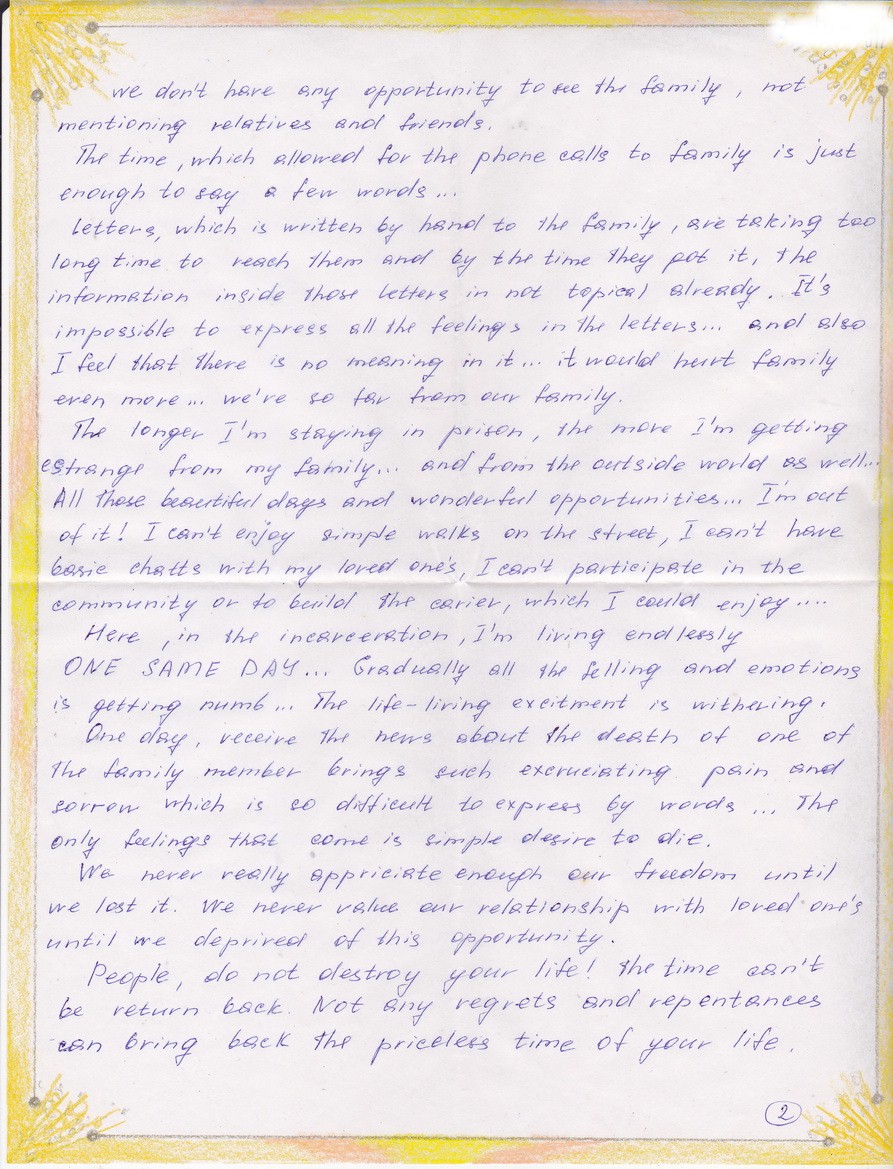 we don't have any opportunity to see the family, not
mentioning relatives and friends.
The time, which allowed for the phone calls to family is just
enough to say a few words...
Letters, which is written by hand to the family, are taking too
long time to reach them and by the time they pot it, the
information inside those letters in not topical already. It's
impossible to express all the feelings in the letters... and also
I feel that there is no meaning in it... it would hurt family
even more... we're so far from our family.
The longer I'm staying in prison, the more I'm getting
estrange from my family... and from the outside world as well...
All those beautiful days and wonderful opportunities... I'm out
of it! I can't enjoy simple walks on the street, I can't have
basic chatts with my loved one's, I can't participate in the
community or to build the carier, which I could enjoy....
Here, in the incarceration, I'm living endlessly
ONE SAME DAY... Gradually all the felling and emotions
is getting numb... The life-living excitment is withering.
One day, receive the news about the death of one of
the family member brings such excruciating pain and
sorrow which is so difficult to express by words... The
only feelings that come is simple desire to die.
We never really appriciate enough our freedom until
we lost it. We never value our relationship with loved one's
until we deprived of this opportunity.
People, do not destroy your life! The time can't
be return back. Not any regrets and repentances
can bring back the priceless time of your life.
2